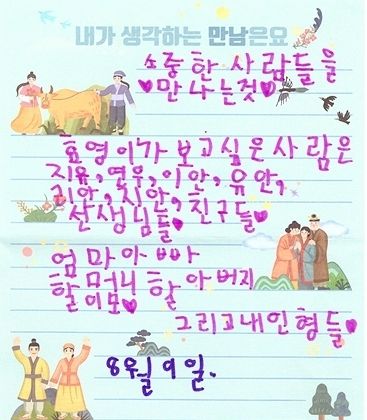 내가 생각하는 만남은요
소중한 사람들을
♥만나는것♥
효영이가 보고싶은사람은
지유,연우,이안,유안,
리안,시안,친구들♥
선생님들♥
엄마아빠
할머니 할아버지
할이모♥
그리고내인형들♥
8월 9일.